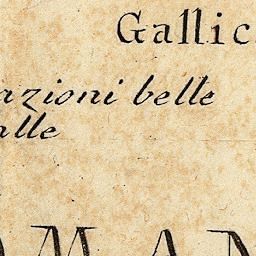 Gallic
azioni belle
alle
MAN